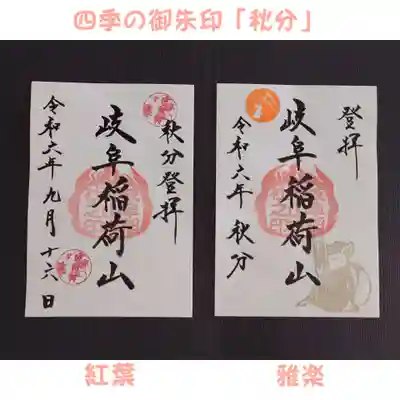 四季の御朱印「秋分」
秋分登拝
岐阜稲荷山
令和六年九月十六日
登拝
岐阜稲荷山
令和六年 秋分
紅葉
雅楽